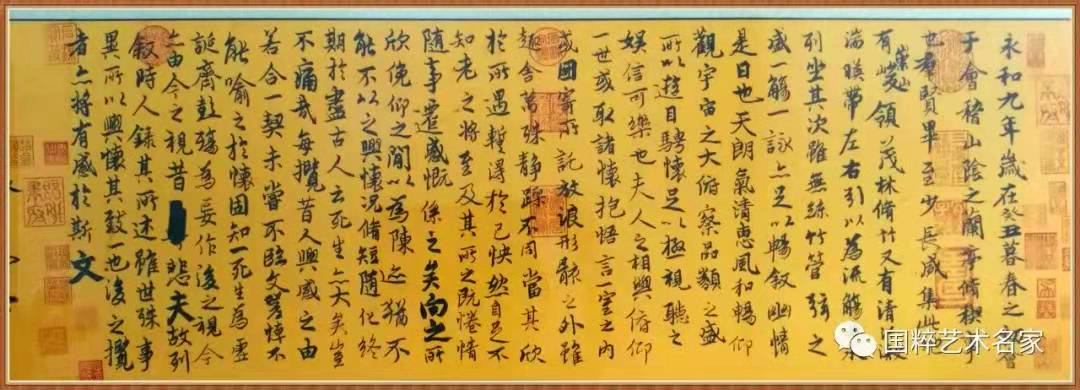 永和九年歲在癸丑暮春之初會
于會稽山陰之蘭亭脩稧事
也羣賢畢至少長咸集此
有崇山峻領茂林脩竹又有清
湍暎帶左右引以為流觴
列坐其次雖無絲竹管弦之
盛一觴一詠亦足以暢敘幽情
是日也天朗氣清惠風和暢仰
觀宇宙之大俯察品類之盛
所以遊目騁懷足以極視聽之
娛信可樂也夫人之相與俯仰
一世或取諸懷抱悟言一室之內
或因寄所託放浪形骸之外雖
趣舍萬殊靜躁不同當其欣
於所遇暫得於己怏然自足不
知老之將至及其所之既惓情
隨事遷感慨係之矣向之所
欣俛仰之閒以為陳迹猶不
能不以之興懷況脩短隨化終
期於盡古人云死生亦大矣豈
不痛哉每攬昔人興感之由
若合一契未嘗不臨文嗟悼不
能喻之於懷固知一死生為虛
誕齊彭殤為妄作後之視今
亦由今之視昔悲夫故列
敘時人錄其所述雖世殊事
異所以興懷其致一也後之攬
者亦將有感於斯文
国粹艺术名家